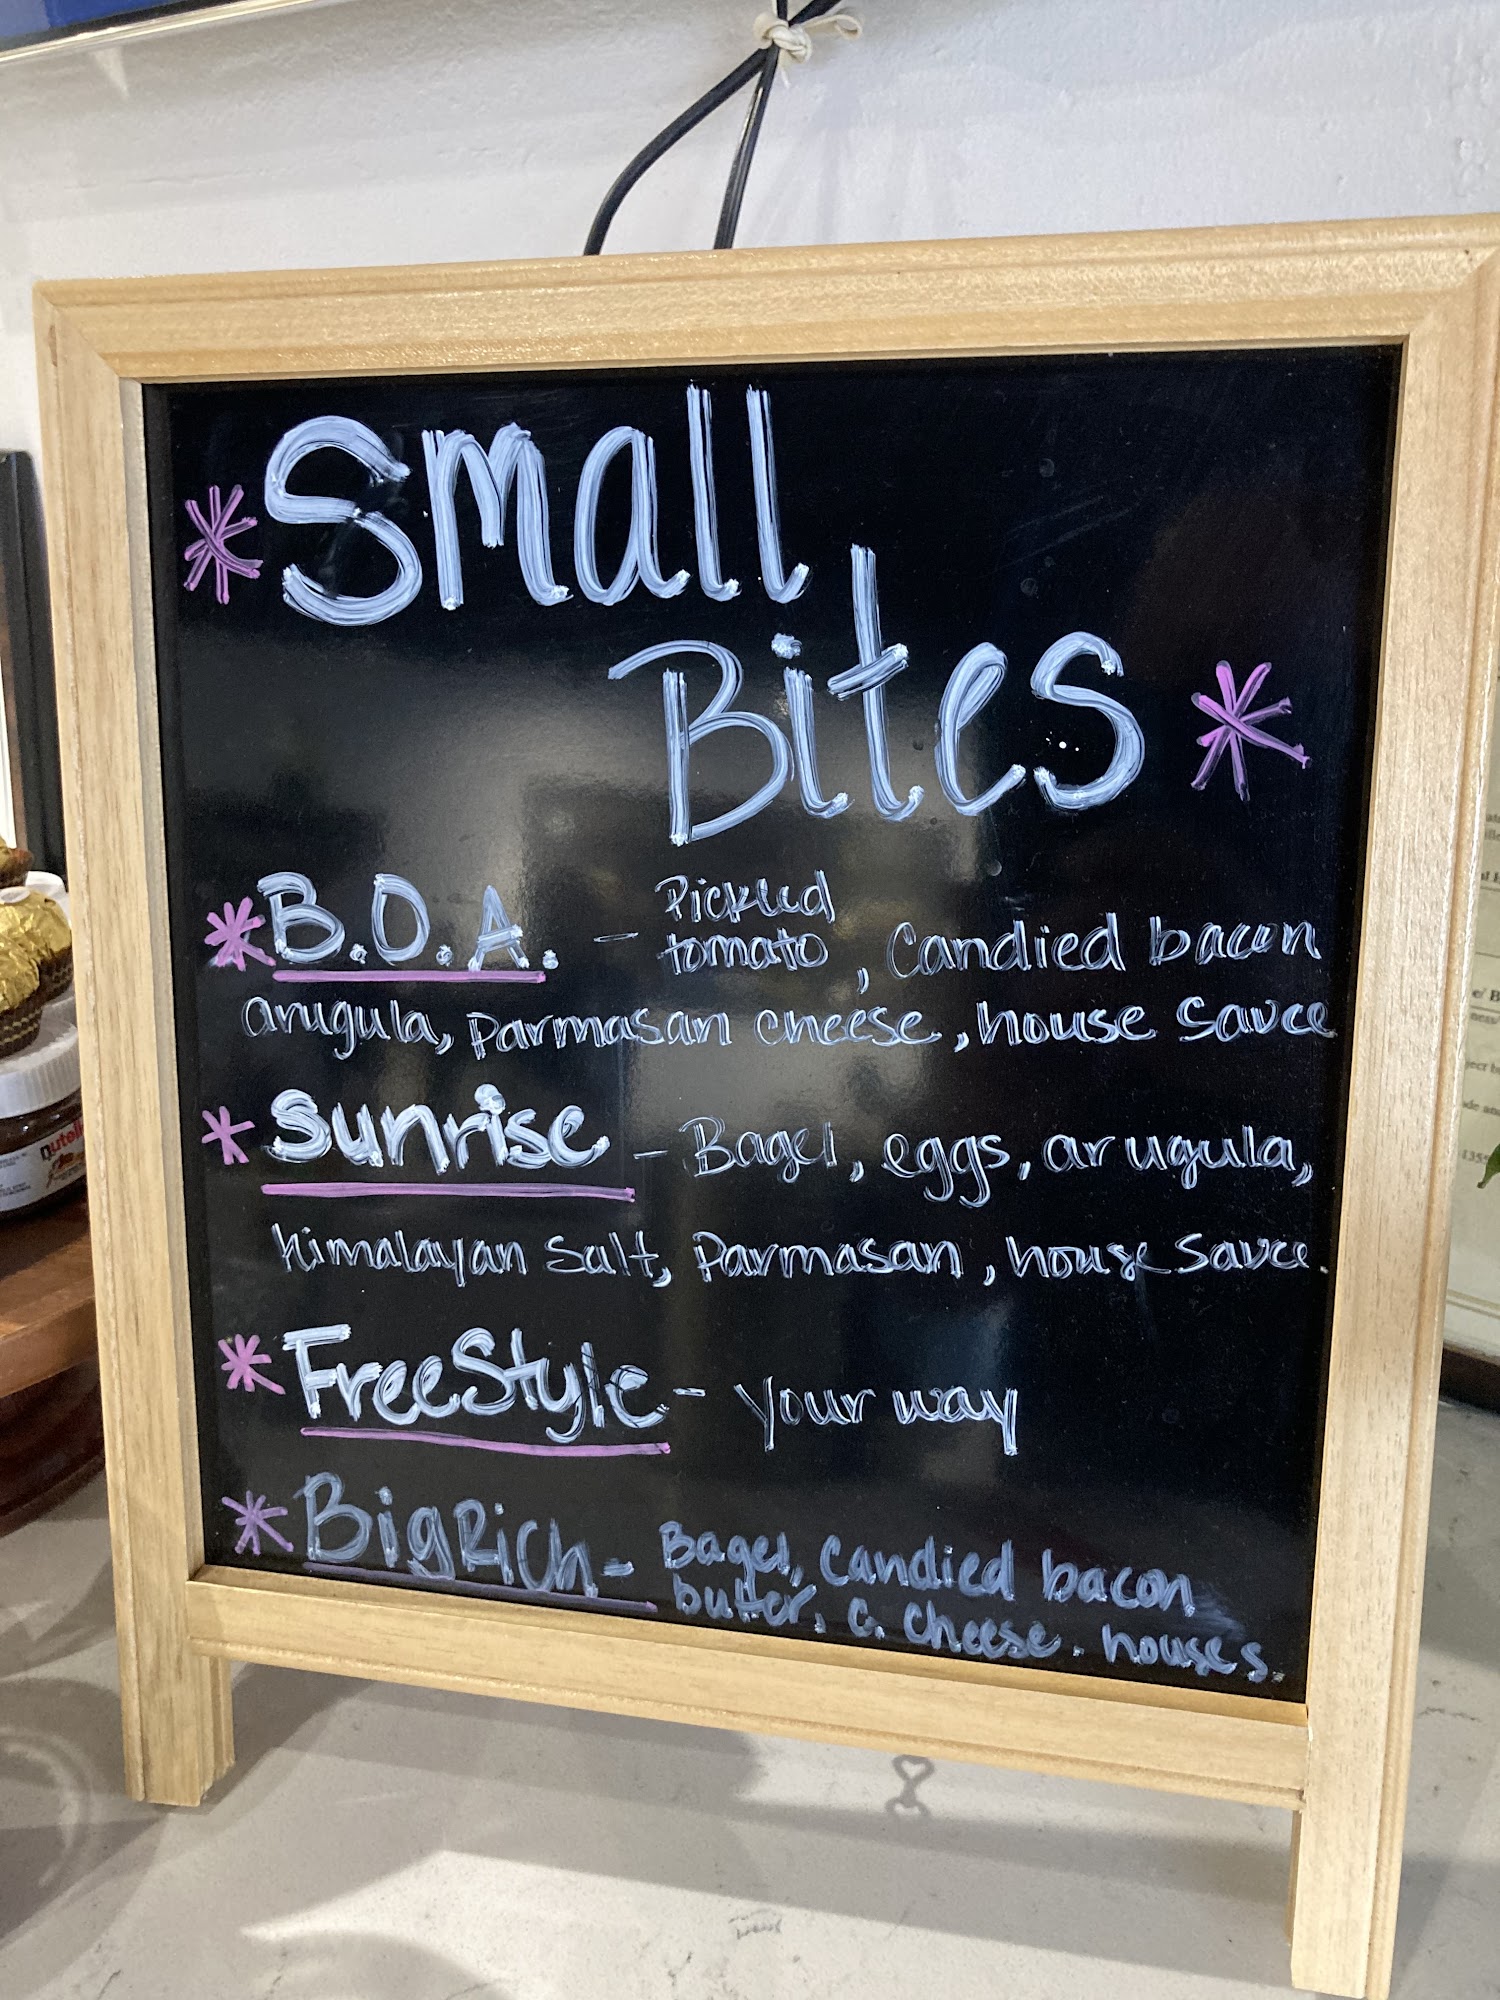 *Small
Bites*
*B.O.A. - Pickled
tomato, Candied bacon
arugula, parmasan cheese, house sauce
*Sunrise - Bagel, eggs, arugula,
himalayan salt, parmasan, house sauce.
*FreeStyle - your way
*BigRich - Bagel, Candied bacon
butter, C. Cheese. house s.
nutella